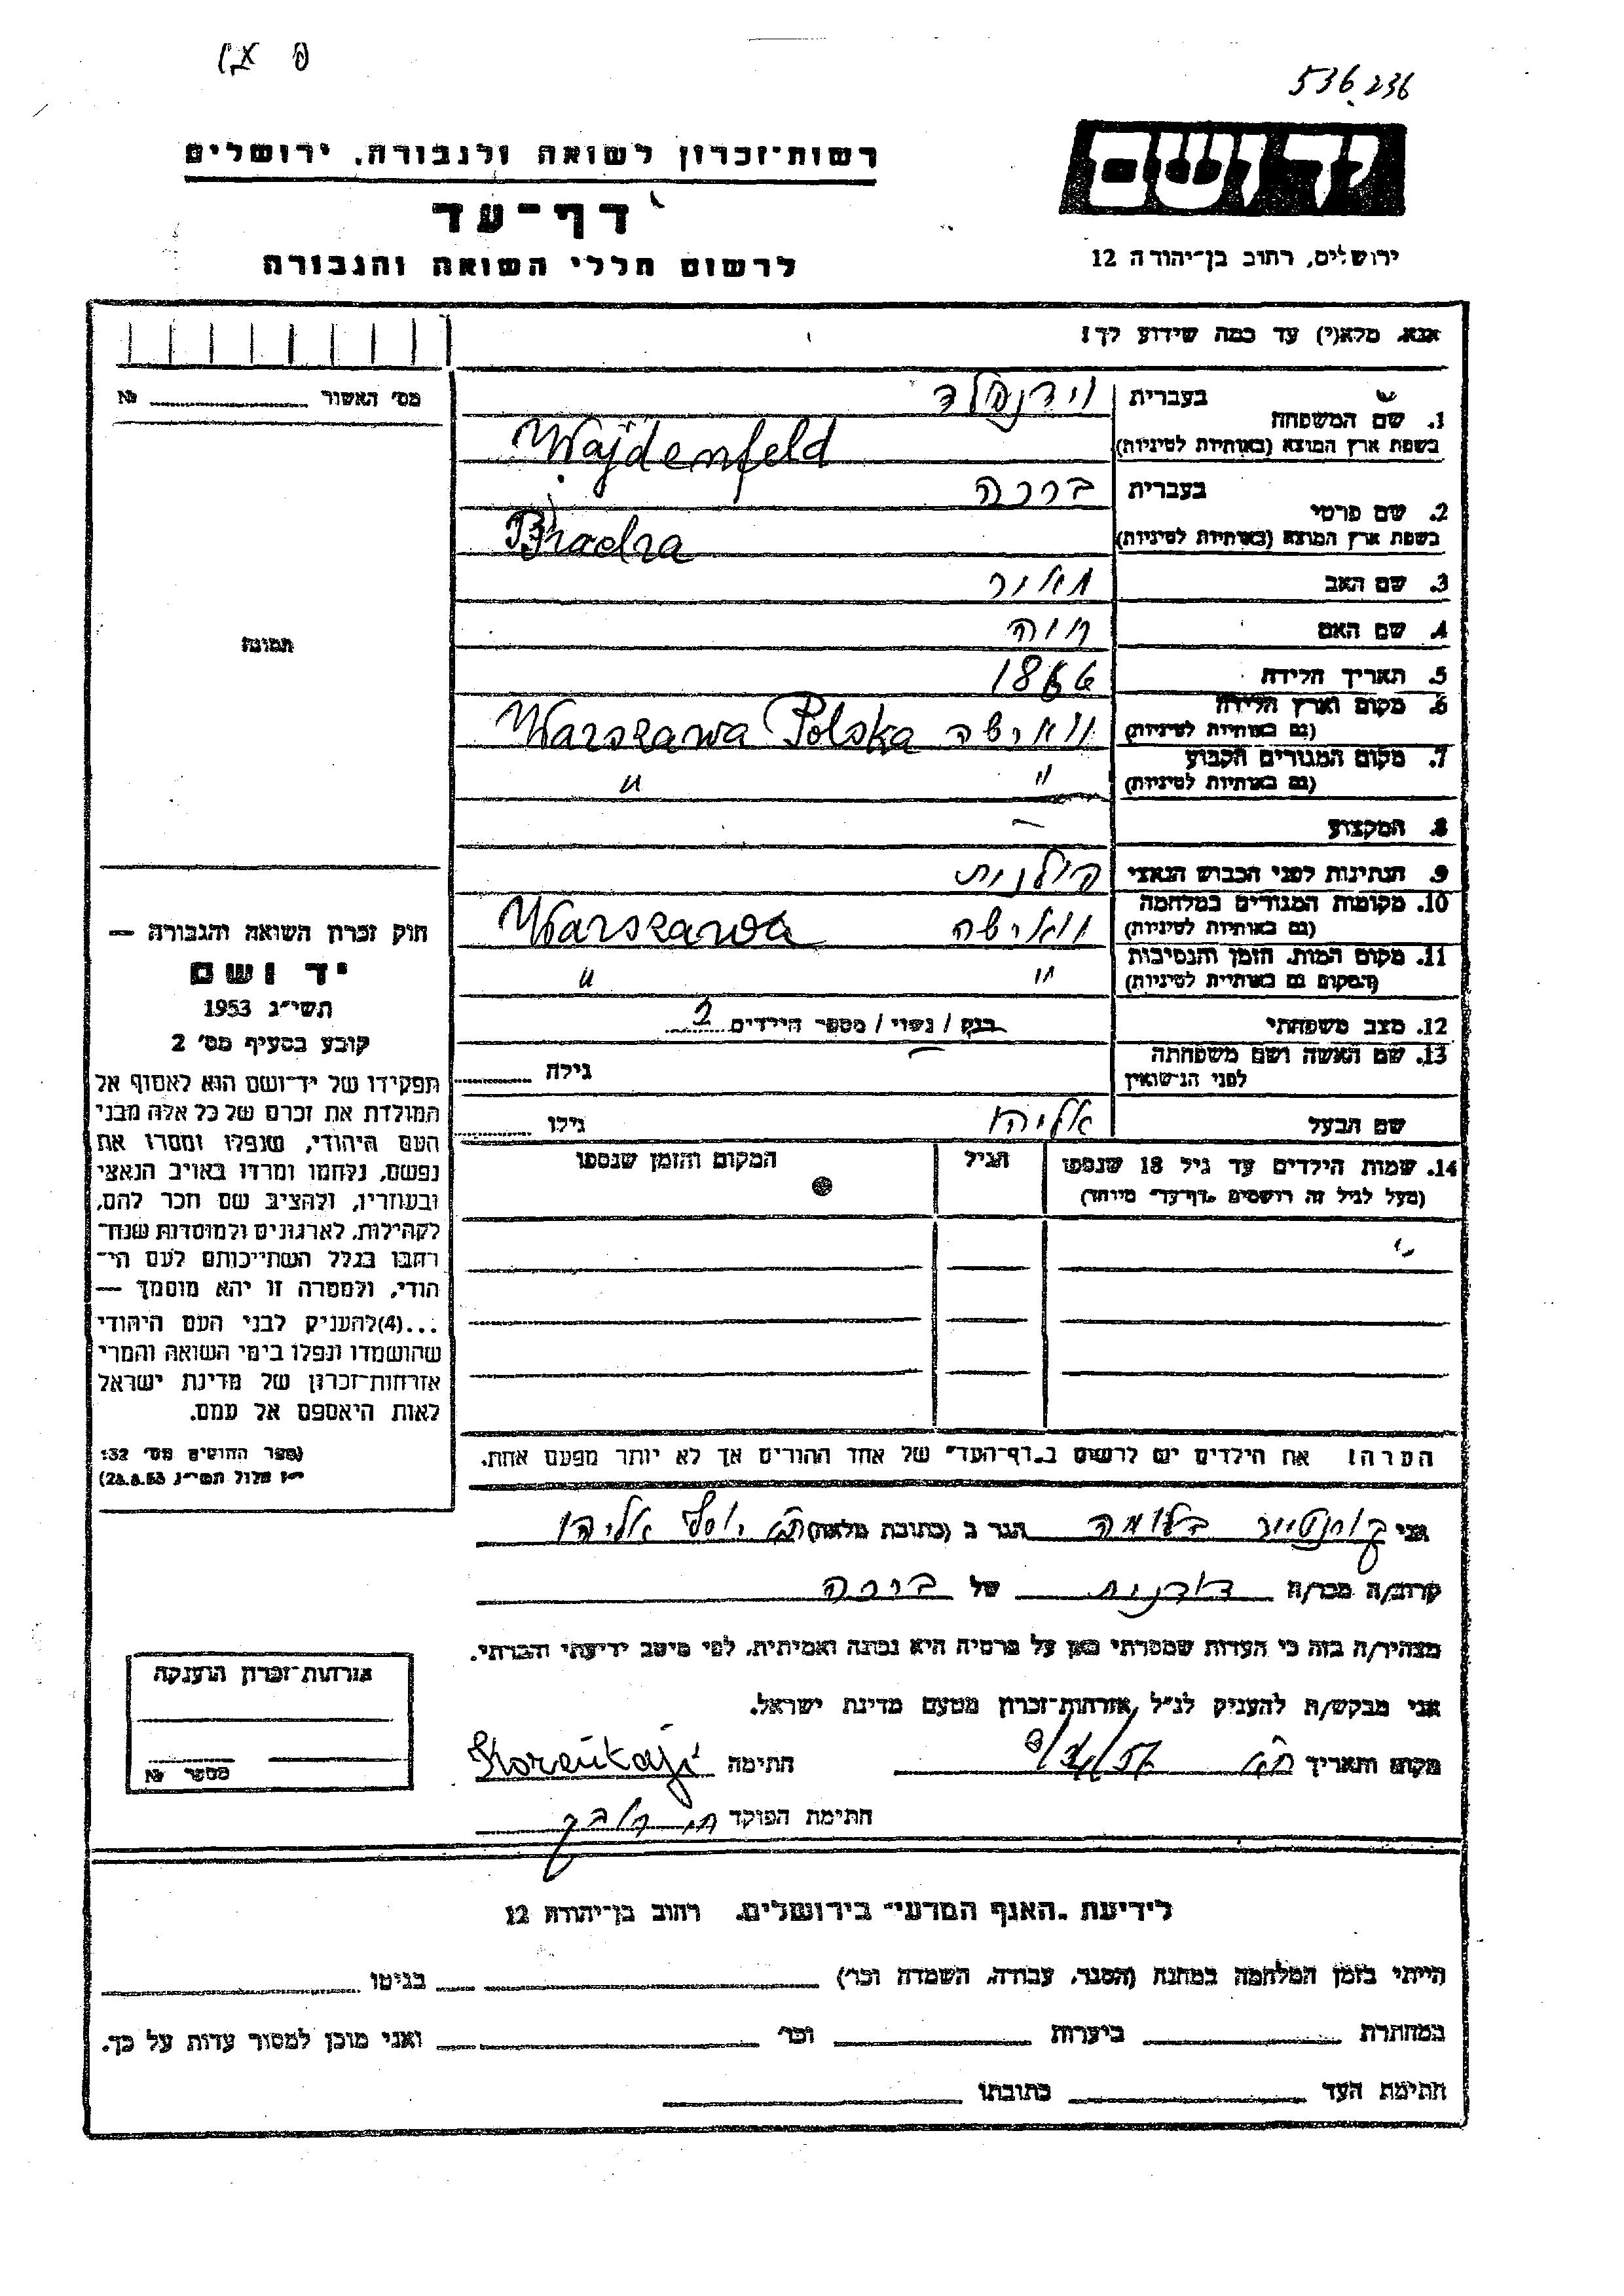 536236
יד ושם
ירושלים, רחוב בן־יהודה 12
רשות־זכרון לשואה ולגבורה, ירושלים
דף־עד
לרשום חללי השואה והגבורה
אנא, מלא(י) עד כמה שידוע לך!
מס׳ האשור № ........
1. שם המשפחה
בעברית וידנפלד
בשפת ארץ המוצא (באותיות לטיניות) Wajdenfeld
2. שם פרטי
בעברית ברכה
בשפת ארץ המוצא (באותיות לטיניות) Bracha
3. שם האב מאיר
4. שם האם חוה
5. תאריך הלידה
6. מקום וארץ הלידה
(גם באותיות לטיניות) וארשה Warszawa Polska
7. מקום המגורים הקבוע
(גם באותיות לטיניות) " "
8. המקצוע —
9. הנתינות לפני הכבוש הנאצי פולנית
10. מקומות המגורים במלחמה
(גם באותיות לטיניות) וארשה Warszawa
11. מקום המות, הזמן והנסיבות
(המקום גם באותיות לטיניות) " "
12. מצב משפחתי רווק / נשוי / מספר הילדים 2
13. שם האשה ושם משפחתה
לפני הנישואין — גילה ........
שם הבעל אליהו גילו ........
14. שמות הילדים עד גיל 18 שנספו הגיל המקום והזמן שנספו
(מעל לגיל זה רושמים "דף־עד" מיוחד)
הערה! את הילדים יש לרשום ב"דף־העד" של אחד ההורים אך לא יותר מפעם אחת.
תמונה
חוק זכרון השואה והגבורה —
יד ושם
תשי״ג 1953
קובע בסעיף מס׳ 2
תפקידו של יד־ושם הוא לאסוף אל
המולדת את זכרם של כל אלה מבני
העם היהודי, שנפלו ומסרו את
נפשם, נלחמו ומרדו באויב הנאצי
ובעוזריו, ולהציב שם וזכר להם,
לקהילות, לארגונים ולמוסדות שנח־
רבו בגלל השתייכותם לעם הי־
הודי, ולמטרה זו יהא מוסמך —
...(4) להעניק לבני העם היהודי
שהושמדו ונפלו בימי השואה והמרי
אזרחות־זכרון של מדינת ישראל
לאות היאספם אל עמם.
(ספר החוקים מס׳ 132
י״ז אלול תשי״ג 28.8.53)
אני בלומה הגר ב (כתובת מלאה) ת״א יוסף אליהו
קרוב/ה מכר/ה דודנית של ברכה
מצהיר/ה בזה כי העדות שמסרתי כאן על פרטיה היא נכונה ואמיתית, לפי מיטב ידיעתי והכרתי.
אני מבקש/ת להעניק לנ״ל אזרחות־זכרון מטעם מדינת ישראל.
מקום ותאריך ת״א חתימה
חתימת הפוקד
אזרחות־זכרון הוענקה
מספר №
לידיעת "האגף המדעי" בירושלים, רחוב בן־יהודה 12
הייתי בזמן המלחמה במחנה (הסגר, עבודה, השמדה וכו׳) בגיטו
במחתרת ביערות וכו׳ ואני מוכן למסור עדות על כך.
חתימת העד כתובתו